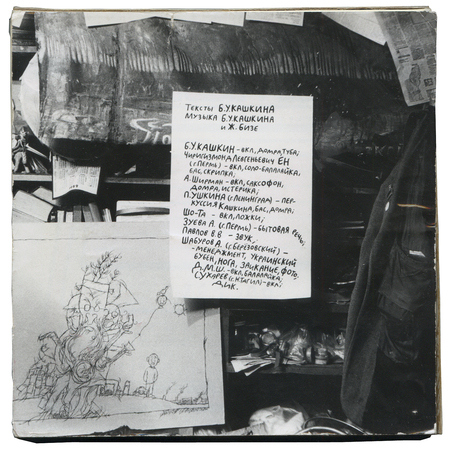 Тексты Б.У.Кашкина
Музыка Б.У.Кашкина
и Ж.Бизе
Б.У.Кашкин – вкл, домра, туба;
Евгеньевич Ён
(г.Пермь) – вкл, соло-балалайка,
бас, скрипка,
А.Ширман – вкл, саксофон,
домра, истерика,
П.Ушкина (г.Ленинград) – пер-
куссия Кашкина, бас, домра,
Шо-Та – вкл, ложки,
Зуева А. (г.Пермь) – бытовая речь,
Павлов В.В – звук,
Шабуров А. (г.Березовский) –
– менеджмент, украинский
бубен, нога, заикание, фото.
Д.М.Ш. – вкл, балалайка,
Сухарев (г.Н.Тагил) – вкл,
Дик.